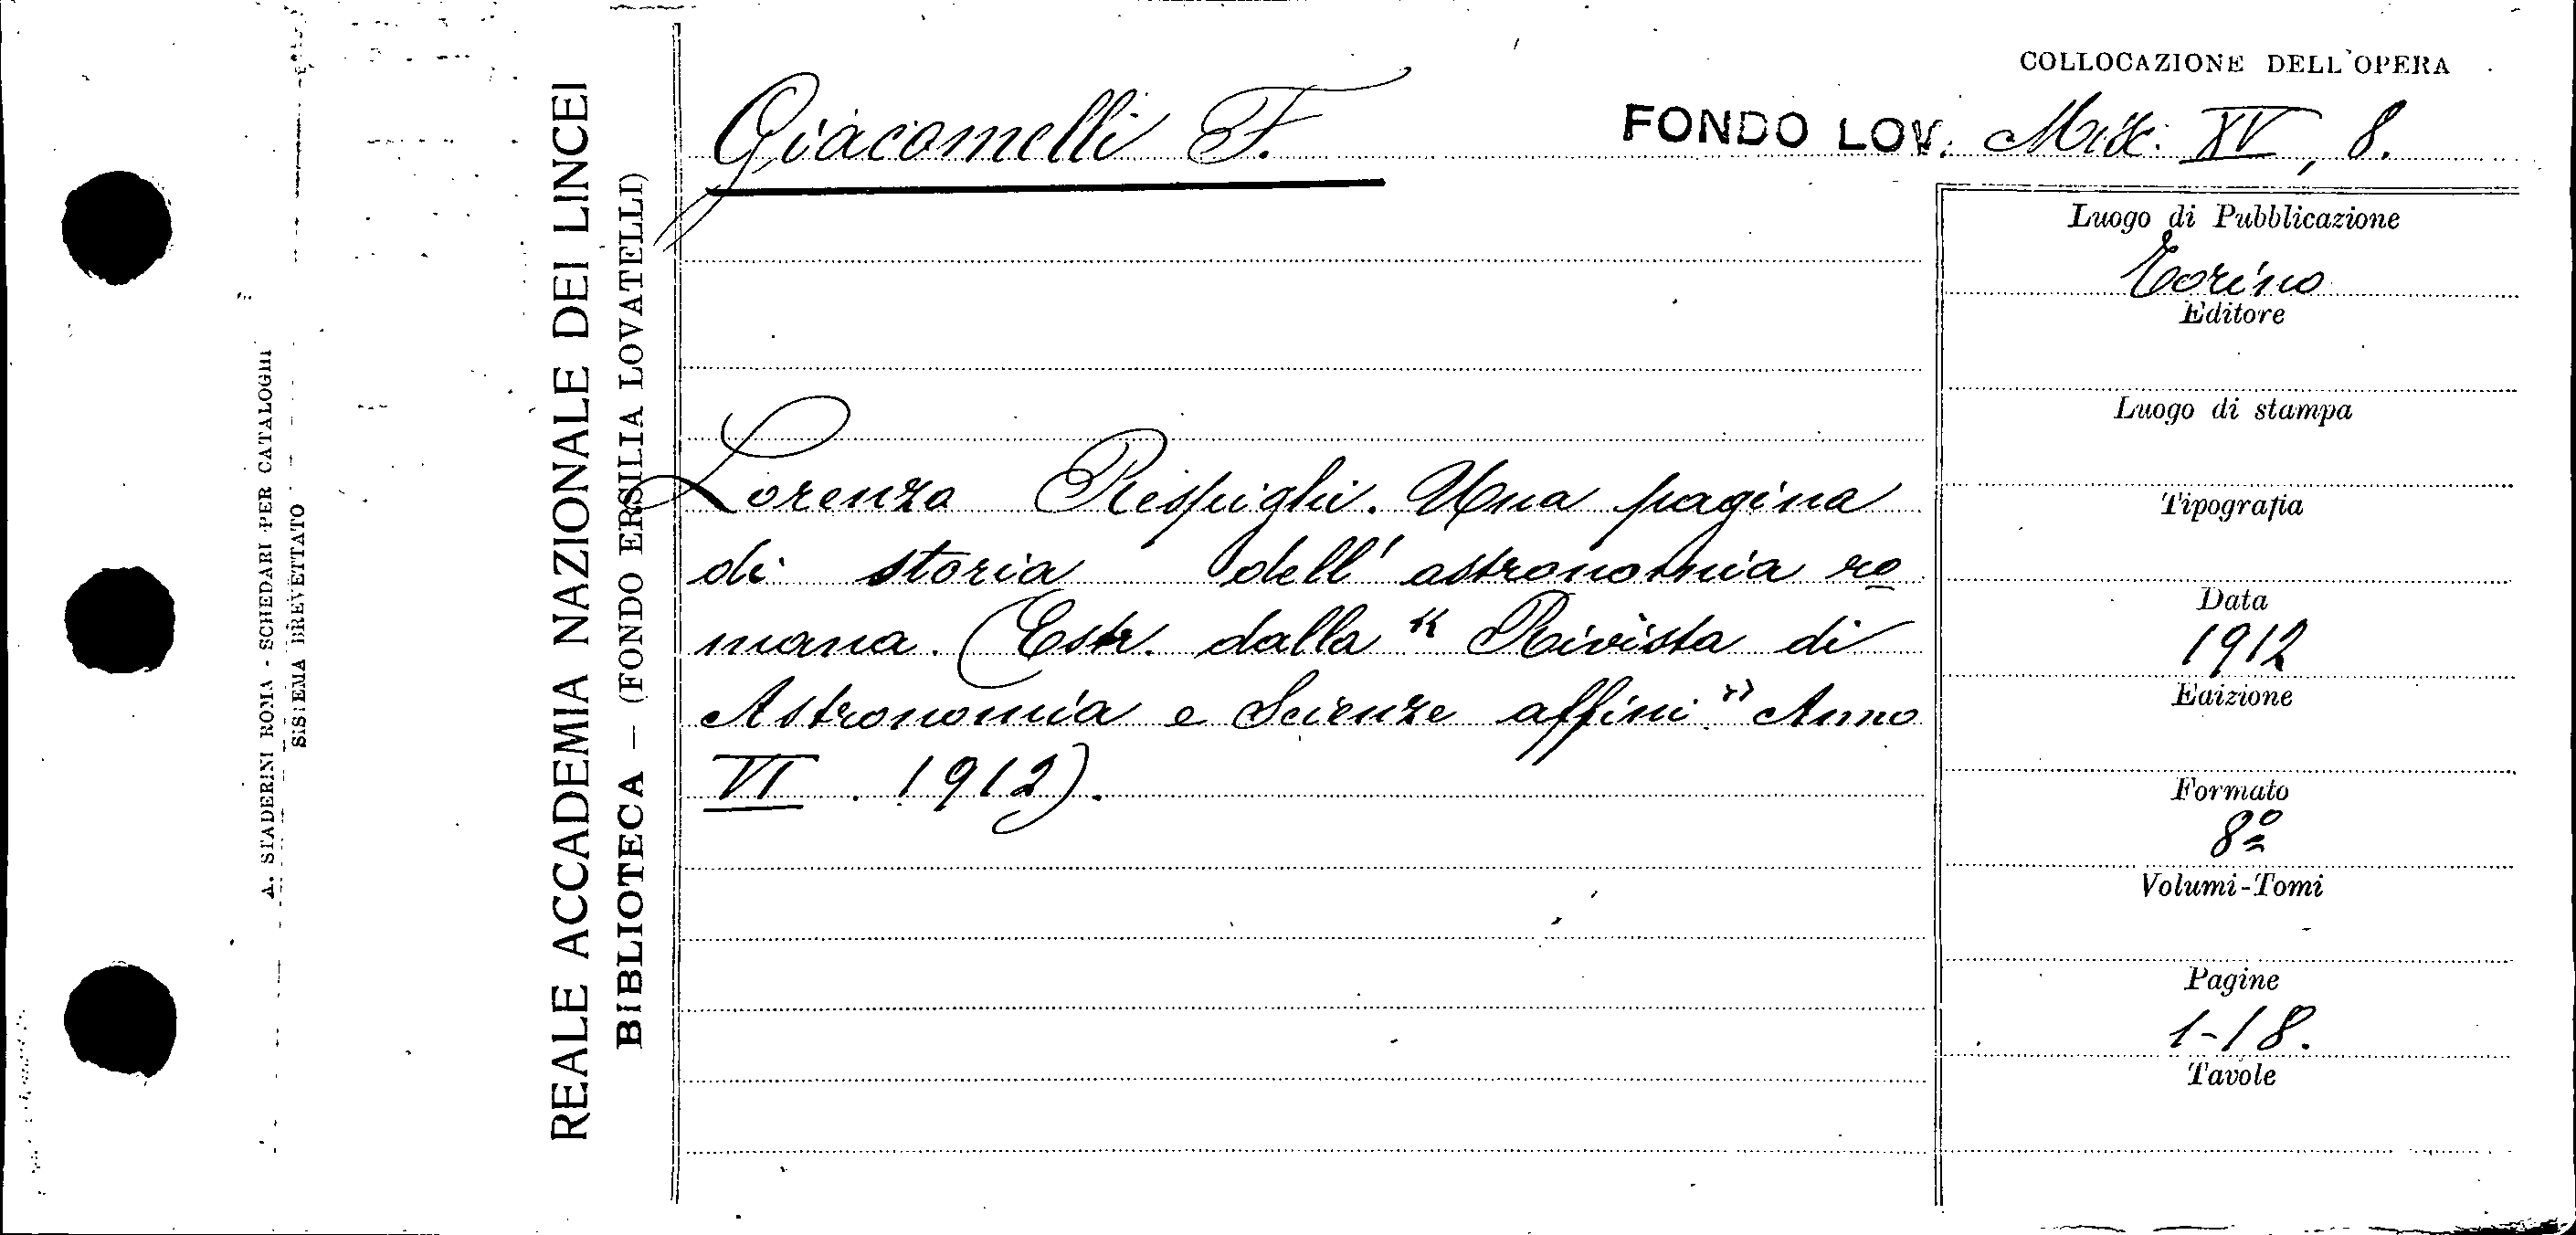 A. STADERINI ROMA - SCHEDARI PER CATALOGHI
SISTEMA BREVETTATO
REALE ACCADEMIA NAZIONALE DEI LINCEI
BIBLIOTECA — (FONDO ERSILIA LOVATELLI)
COLLOCAZIONE DELL'OPERA
Giacomelli F.
FONDO LOV. Misc. XV, 8.
Lorenzo Respighi. Una pagina
di storia dell' astronomia ro
mana. (Estr. dalla " Rivista di
Astronomia e Scienze affini " Anno
VI. 1912).
Luogo di Pubblicazione
Torino
Editore
Luogo di stampa
Tipografia
Data
1912
Edizione
Formato
8º
Volumi-Tomi
Pagine
1-18.
Tavole